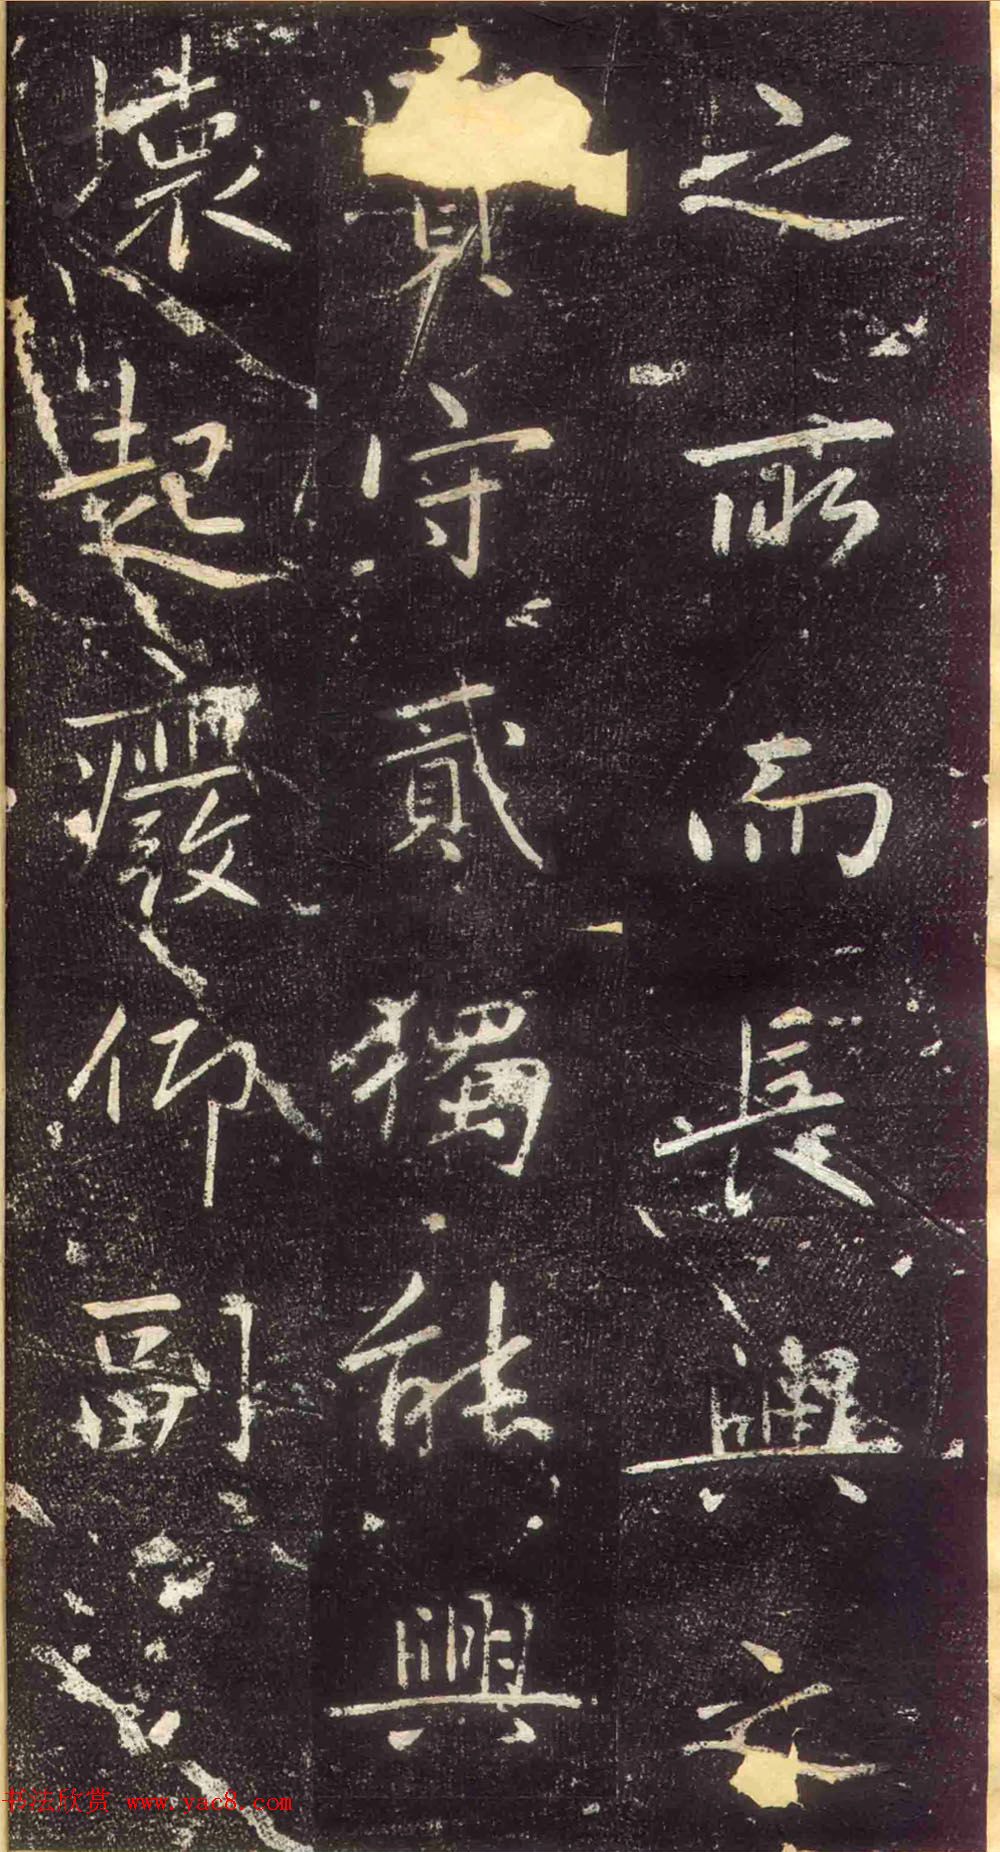 之所而長與之
守貳獨能興
壞起癈仰副
书法欣赏 www.yac8.com